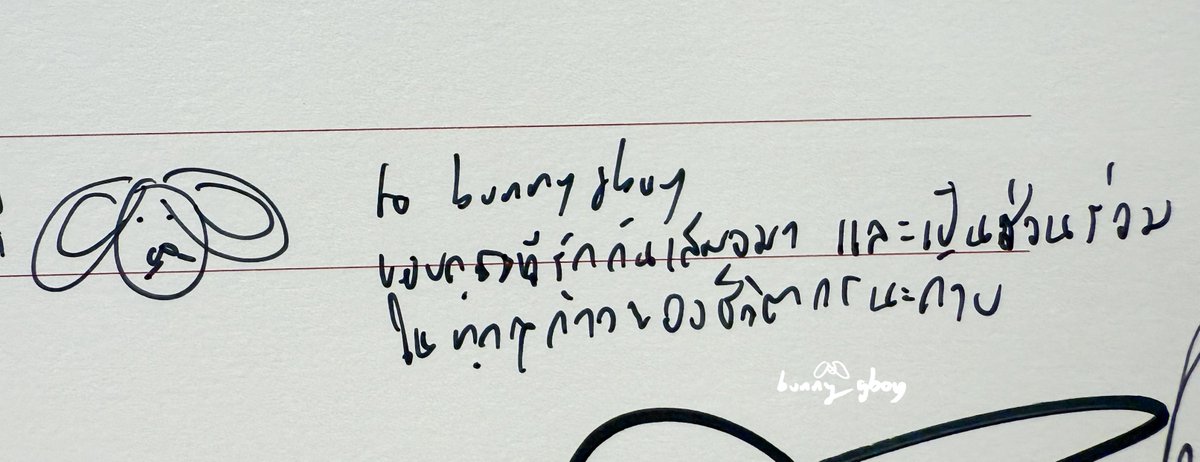 to bunny gboy
ขอบคุณที่รักกันเสมอมา และเป็นส่วนร่วม
ในทุกๆก้าวของชีวิตกรนะคับ
bunny_gboy